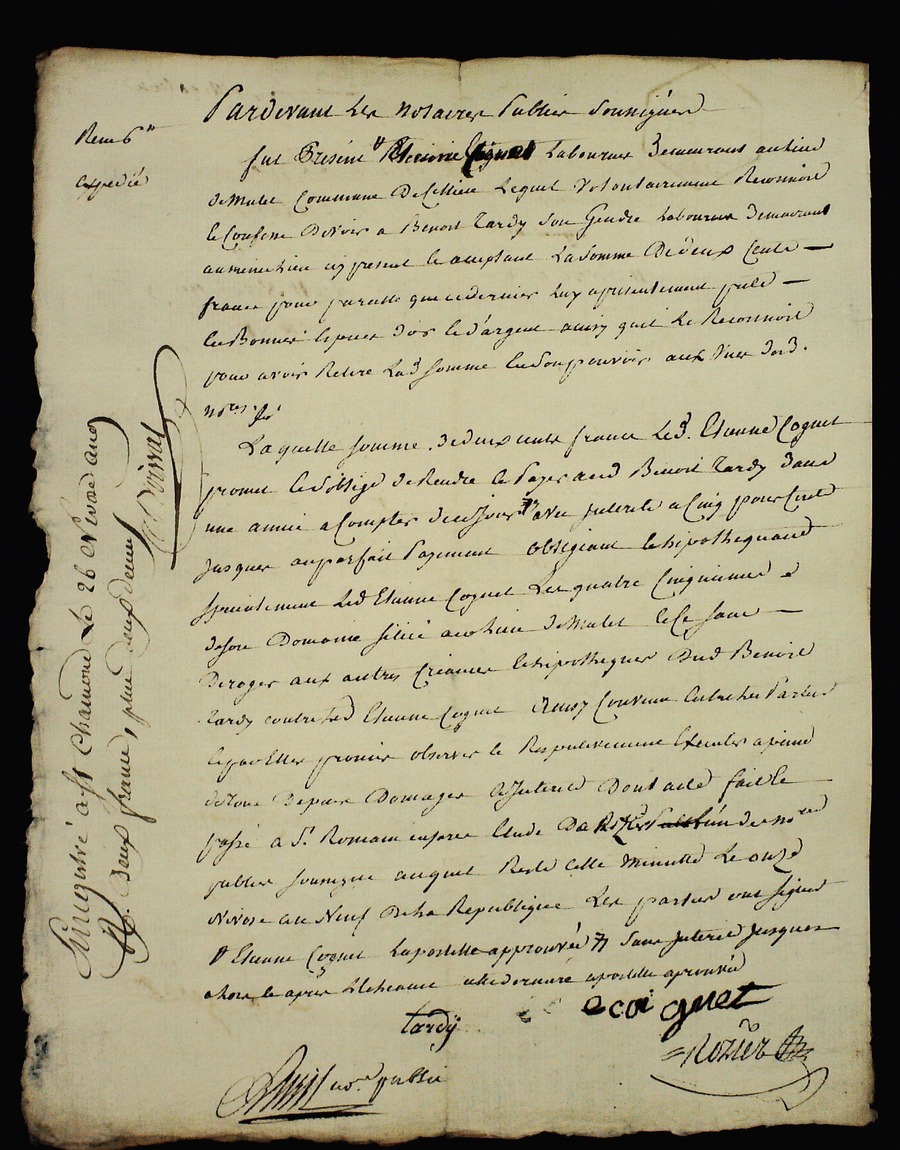 Pardevant Les notaires Publics Soussignés
fut Présent # Etienne Coignet Laboureur Demeurant au lieu
de Mulet Commune De Cellieu Lequel Volontairement Reconnoit
et Confesse Devoir a Benoit Tardy Son Gendre Laboureur Demeurant
au même lieu icy present et acceptant La Somme De deux Cents
francs pour que ce dernier luy a presentement
en Bonnes Especes d'or et d'argent ainsy qu'il Le Reconnoit
pour avoir Retiré Lad Somme En Son pouvoir aux vues Desd.
nores
Laquelle Somme de deux cents francs Led. Etienne Coguet
promet et S'oblige de Rendre et Payer aud Benoit Tardy Dans
une année a Compter de ce Jour avec Interets a Cinq pour Cent
Jusques au parfait Payement obligeant et hipothequand
Specialement Led Etienne Coguet Les quatre Cinquiemes
de Son Domaine Situé aud lieu de Mulet et Ce Sans
Deroger aux autres Creances et hipotheques Dud Benoit
Tardy contre Led Etienne Coguet Ainsy Convenu Entre Les Parties
Lesquelles promis observer et Respectivement Executer a peine
de Tous Depens Domages Interets Dont acte fait et
passé a St. Romain en Jarez Etude De Rozier L'un des nores
publics Soussignés auquel Reste Cette Minutte Le onze
Nivose an Neuf De La Republique Les parties ont Signé
# Etienne Coguet La postille approuvée Sans Interets Jusques
alors et après L'echeance cette derniere apostille aprouvée
tardy ecoi gnet
Rozier
nore public
Rem 6
expedié
Enregistré a St Chamond Le 26 Nivose an 9
R. Deux francs, plus deux decimes